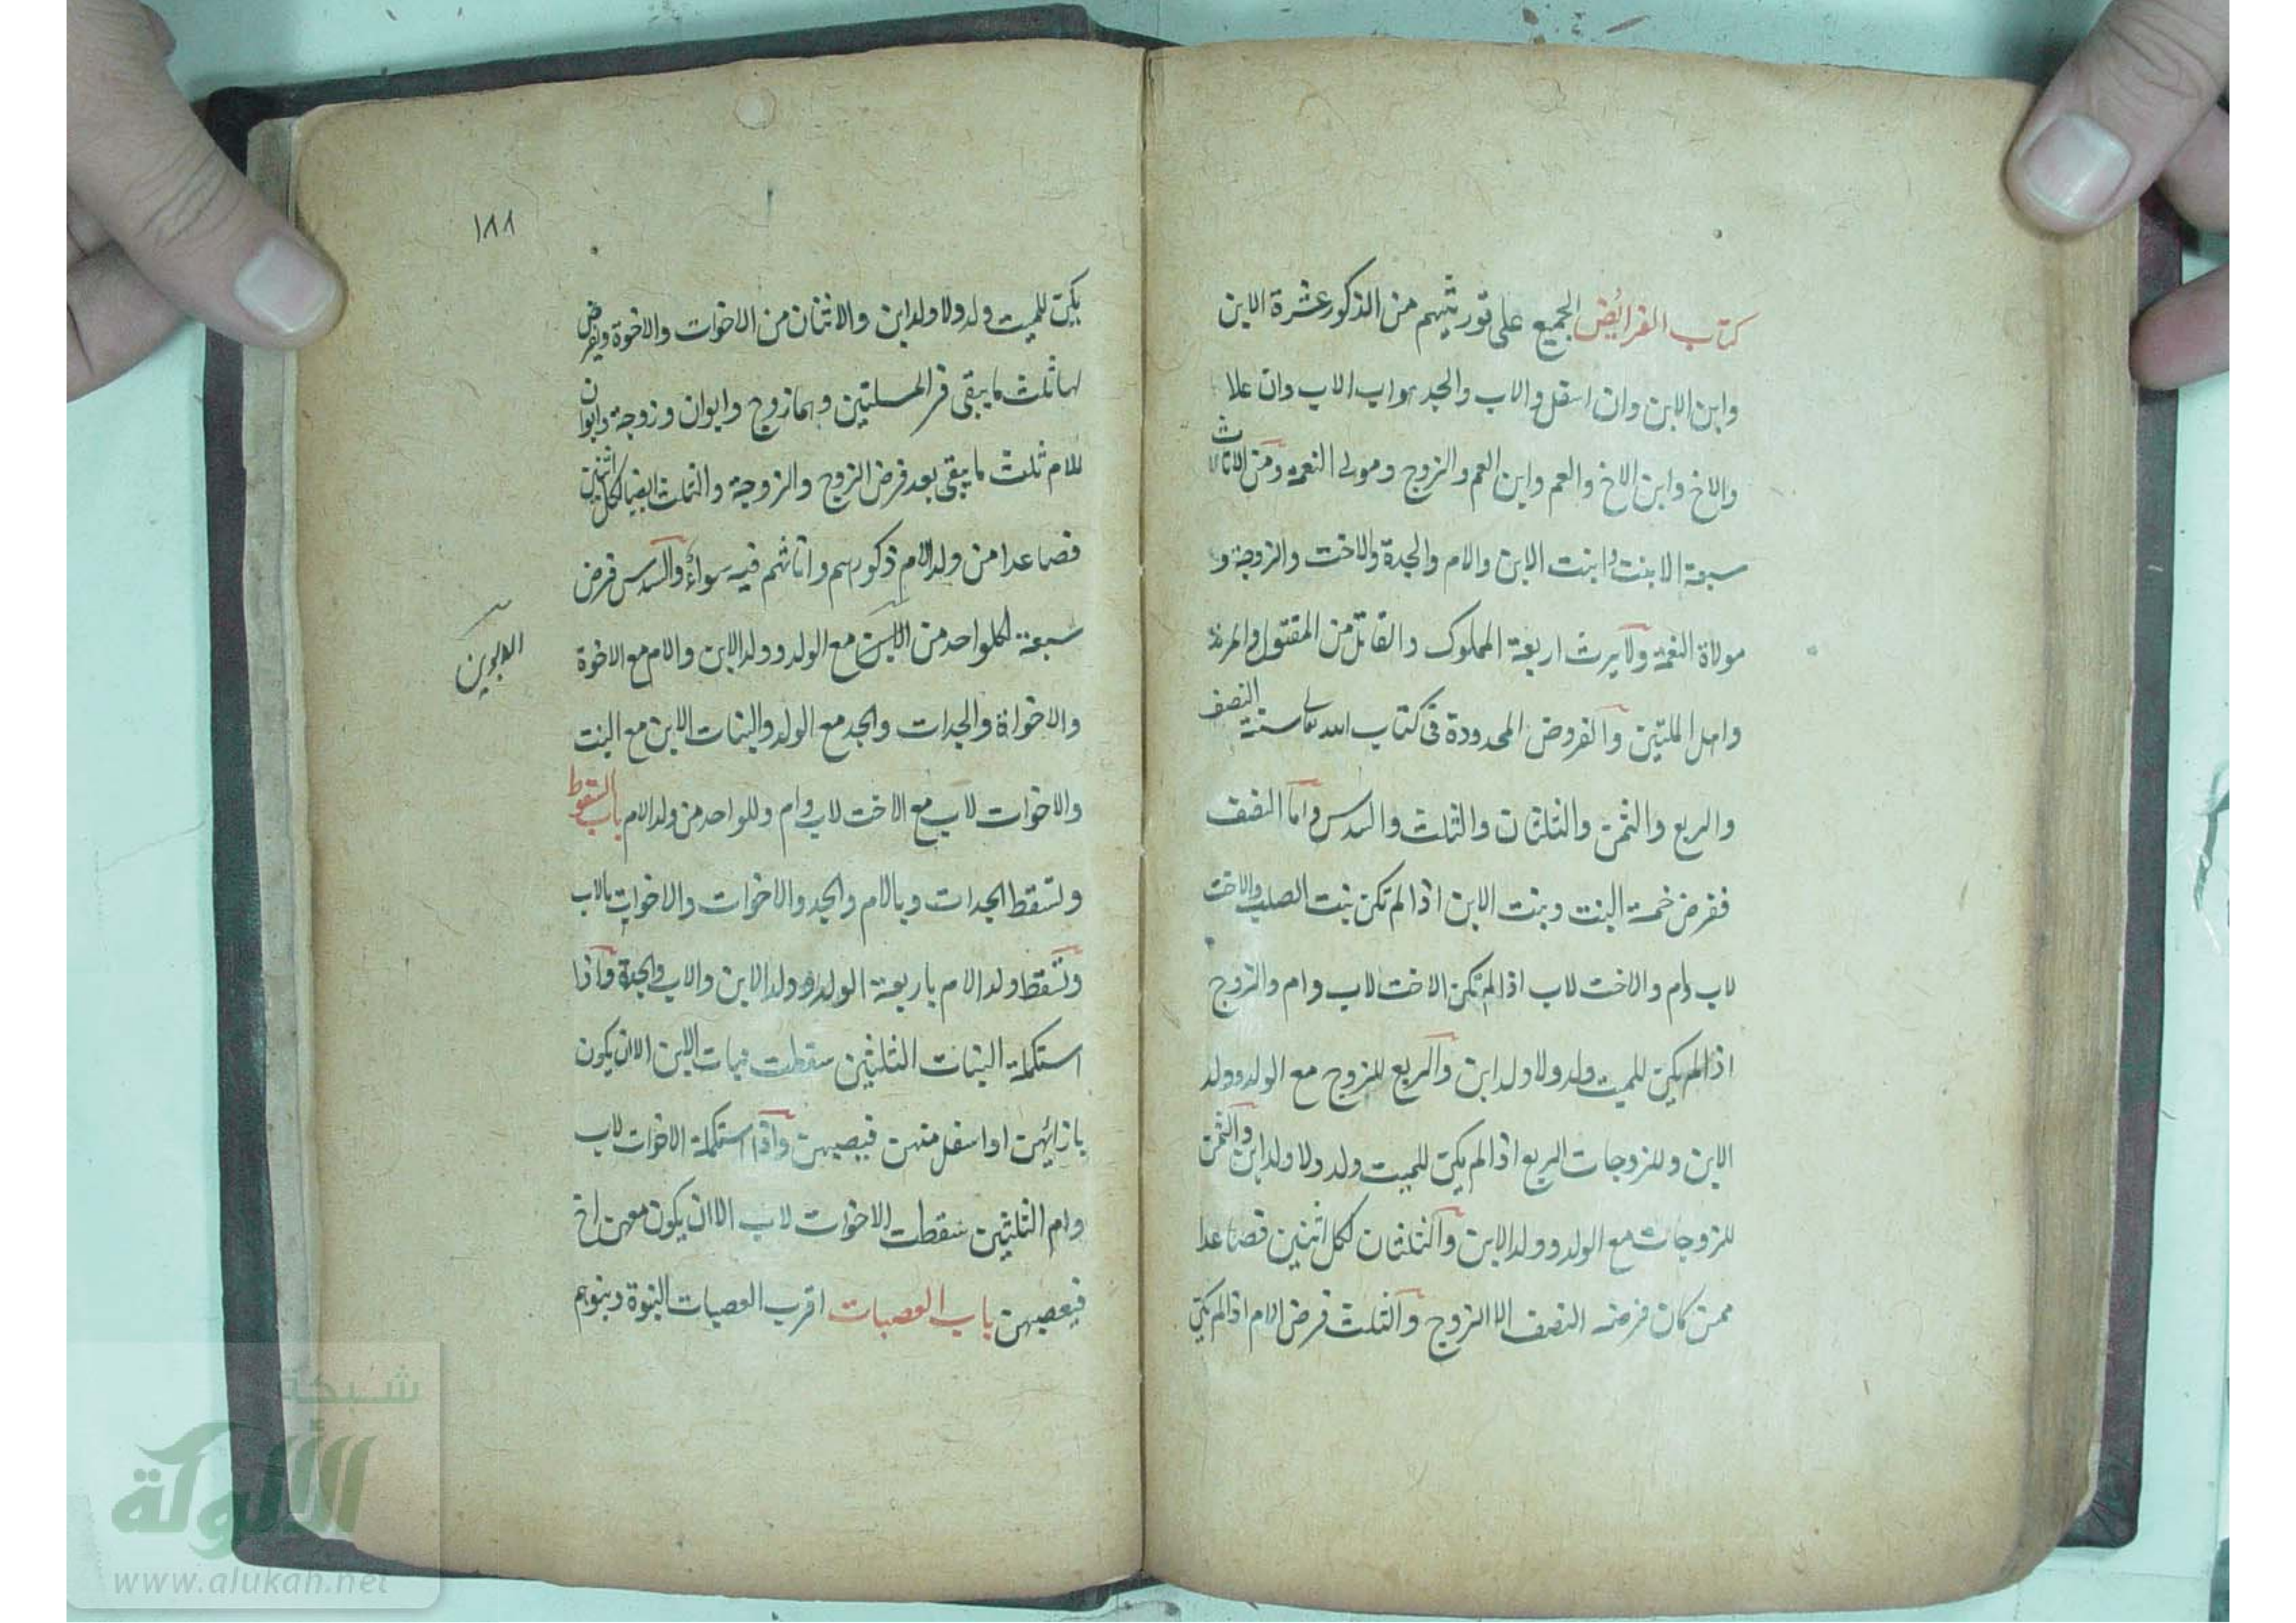 كتاب الفرائض الجميع على توريثهم من الذكور عشرة الابن
وابن الابن وان اسفل والاب والجد هو اب الاب وان علا
والاخ وابن الاخ والعم وابن العم والزوج ومولى النعمة ومن الاناث
سبعة الابنت وابنت الابن والام والجدة والاخت والزوجة و
مولاة النعمة ولا يرث اربعة المملوك والقاتل من المقتول والمرتد
واهل الملتين والفروض المحدودة فى كتاب الله تعا ستة النصف
والربع والثمن والثلثان والثلث والسدس واما النصف
ففرض خمسة البنت وبنت الابن اذا لم تكن بنت الصلب والاخت
لاب وام والاخت لاب اذا لم تكن الاخت لاب وام والزوج
اذا لم يكن للميت ولد ولا ولد ابن والربع للزوج مع الولد وولد
الابن وللزوجات الربع اذا لم يكن للميت ولد ولا ولد ابن والثمن
للزوجات مع الولد وولد الابن والثلثان لكل اثنين فصاعدا
ممن كان فرضه النصف الا الزوج والثلث فرض الام اذا لم يكن
١٨٨
يكن للميت ولد ولا ولد ابن والاثنان من الاخوات والاخوة ويفرض
لها ثلث ما يبقى فى المسلتين وهما زوج وابوان وزوجة وابوان
للام ثلث ما يبقى بعد فرض الزوج والزوجة والثلث ايضا لكل اثنين
فصاعدا من ولد الام ذكورهم واناثهم فيه سواء والسدس فرض
سبعة لكلواحد من مع الولد وولد الابن والام مع الاخوة
الابوين
والاخواة والجدات والجد مع الولد والبنات الابن مع البنت
والاخوات لاب مع الاخت لاب وام وللواحد من ولد الام باب السقوط
ولتسقط الجدات وبالام والجد والاخوات والاخوات بالاب
وتسقط ولد الام باربعة الولد وولد الابن والاب والجدة واذا
استكملة البنات الثلثين سقطت بنات الابن الا ان يكون
بازائهن او اسفل منهن فيعصبهن واذا استكملة الاخوات لاب
وام الثلثين سقطت الاخوات لاب الا ان يكون معهن اخ
فيعصبهن باب العصبات اقرب العصبات البنوة وبنوهم
شبكة
الألوكة
www.alukah.net